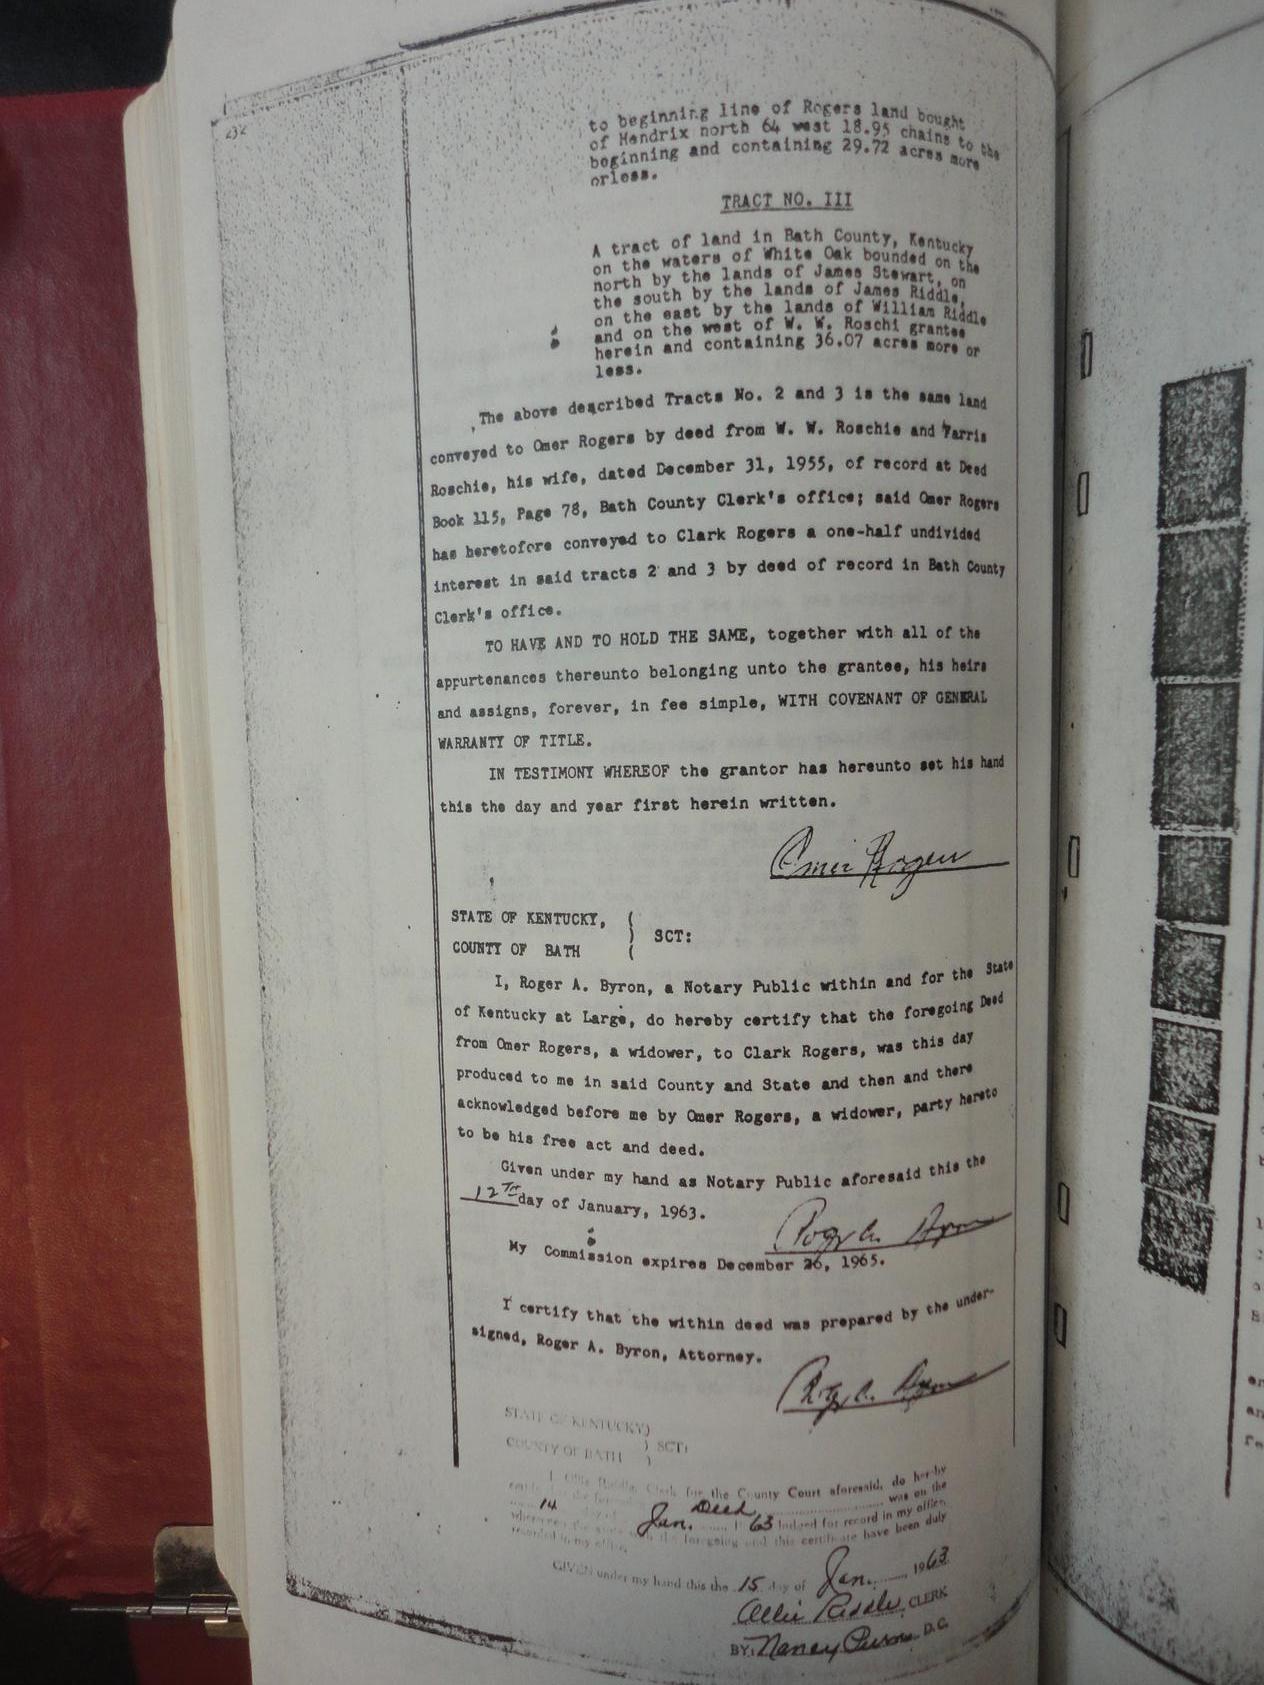 232
to beginning line of Rogers land bought
of Hendrix north 64 west 18.95 chains to the
beginning and containing 29.72 acres more
orless.
TRACT NO. III
A tract of land in Bath County, Kentucky
on the waters of White Oak bounded on the
north by the lands of James Stewart, on
the south by the lands of James Riddle,
on the east by the lands of William Riddle
and on the west of W. W. Roschi grantee
herein and containing 36.07 acres more or
less.
The above described Tracts No. 2 and 3 is the same land
conveyed to Omer Rogers by deed from W. W. Roschie and Farris
Roschie, his wife, dated December 31, 1955, of record at Deed
Book 115, Page 78, Bath County Clerk's office; said Omer Rogers
has heretofore conveyed to Clark Rogers a one-half undivided
interest in said tracts 2 and 3 by deed of record in Bath County
Clerk's office.
TO HAVE AND TO HOLD THE SAME, together with all of the
appurtenances thereunto belonging unto the grantee, his heirs
and assigns, forever, in fee simple, WITH COVENANT OF GENERAL
WARRANTY OF TITLE.
IN TESTIMONY WHEREOF the grantor has hereunto set his hand
this the day and year first herein written.
Omer Rogers
STATE OF KENTUCKY, (
) SCT:
COUNTY OF BATH (
I, Roger A. Byron, a Notary Public within and for the State
of Kentucky at Large, do hereby certify that the foregoing Deed
from Omer Rogers, a widower, to Clark Rogers, was this day
produced to me in said County and State and then and there
acknowledged before me by Omer Rogers, a widower, party hereto
to be his free act and deed.
Given under my hand as Notary Public aforesaid this the
12th day of January, 1963.
Roger A. Byron
My Commission expires December 26, 1965.
I certify that the within deed was prepared by the under-
signed, Roger A. Byron, Attorney.
Roger A. Byron
STATE OF KENTUCKY)
) SCT:
COUNTY OF BATH )
I, Ollie Riddle, Clerk for the County Court aforesaid, do hereby
Deed was on the
14 Jan. 1963 lodged for record in my office,
the foregoing and this certificate have been duly
recorded in my office.
GIVEN under my hand this the 15 day of Jan. 1963
Ollie Riddle CLERK
BY: Nancy D.C.